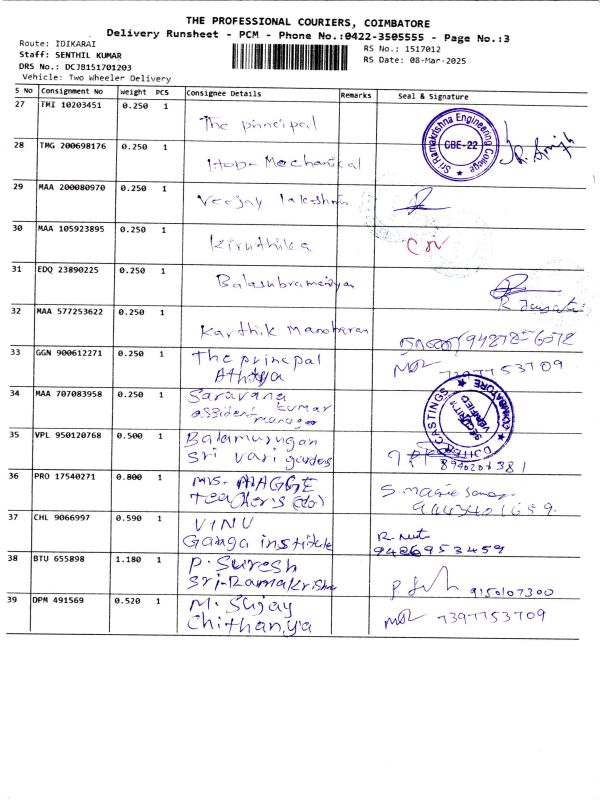 THE PROFESSIONAL COURIERS, COIMBATORE
Delivery Runsheet - PCM - Phone No.:0422-3505555 - Page No.:3
Route: IDIKARAI
RS No.: 1517012
Staff: SENTHIL KUMAR
RS Date: 08-Mar-2025
DRS No.: DCJB151701203
Vehicle: Two Wheeler Delivery
S No Consignment No Weight PCS Consignee Details Remarks Seal & Signature
27 TMI 10203451 0.250 1 The principal
Sri Ramakrishna Engineering College
CBE-22
28 TMG 200698176 0.250 1 Hob- Mechanical
29 MAA 200080970 0.250 1 Veejay lakshmi
30 MAA 105923895 0.250 1 Kiruthika
31 EDQ 23890225 0.250 1 Balasubramaniyan
32 MAA 577253622 0.250 1 Karthik Manoharan
33 GGN 900612271 0.250 1 The principal
Athitya
7397753709
34 MAA 707083958 0.250 1 Saravana
Kumar
assident manager
CASTINGS COIMBATORE
SECURITY VERIFIED
35 VPL 950120768 0.500 1 Balamurugan
Sri Vari gardens
36 PRO 17540271 0.800 1 Mrs. MAGGE
Teacher's (do)
37 CHL 9066997 0.590 1 VINU
Ganga institute
9426953459
38 BTU 655898 1.180 1 P. Suresh
Sri-Ramakrishna
9150107300
39 DPM 491569 0.520 1 M. Sujay
Chithanya
7397753709